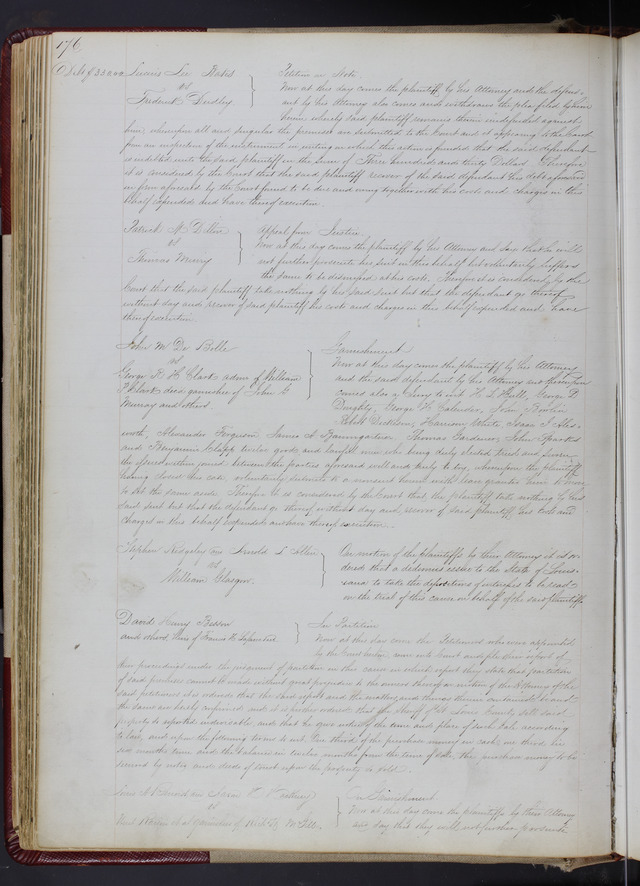 176.
Debt $330.00 Lewis Lee Bates
vs
Frederick Dudley
Petition in Note
Now at this day comes the plaintiff by his Attorney and the defend-
ant by his Attorney also comes and withdraws the plea filed by him
herein whereby said plaintiff remains therein undefended against
him; wherefore all and singular the premises are submitted to the Court and it appearing to the Court
from an inspection of the instrument in writing on which this action is founded that the said defendant
is indebted unto the said plaintiff in the sum of Three hundred and thirty Dollars. Therefore
it is considered by the Court that the said plaintiff recover of the said defendant his debt aforesaid
in form aforesaid by the Court found to be due and owing together with his costs and charges in this
behalf expended and have thereof execution.
Patrick M. Dillon
vs
Thomas
Appeal from Justice
Now at this day comes the plaintiff by his Attorney and says that he will
not further prosecute his suit in this behalf but voluntarily suffers
the same to be dismissed at his costs. Therefore it is considered by the
Court that the said plaintiff take nothing by his said suit but that the defendant go thereof
without day and recover of said plaintiff his costs and charges in this behalf expended and have
thereof execution.
John M De Bolle
vs
George R. H. Clark admr of William
P Clark decd garnishee of John G
Murray and others.
Garnishment
Now at this day comes the plaintiff by his Attorney
and the said defendant by his Attorney and thereupon
comes also a Jury to wit H. L. Hull, George P
Doughty, George W. Calender, John
Robert Dickson, Harrison White Isaac J
worth, Alexander Ferguson James A Baumgardner, Thomas Gardener, John Sparks
and Benjamin Clapp twelve good and lawful men who being duly elected tried and sworn
the issues within joined between the parties aforesaid well and truly to try, whereupon the plaintiff
having closed his case voluntarily submits to a nonsuit herein with leave granted him to move
to set the same aside. Therefore it is considered by the Court that the plaintiff take nothing by his
said suit but that the defendant go thereof without day and recover of said plaintiff his costs and
charges in this behalf expended and have thereof execution.
Stephen Ridgeley and
vs
William Glasgow.
On motion of the Plaintiffs by their Attorney it is or-
dered that a dedimus issue to the State of Louis-
iana to take the depositions of witnesses to be read
in the trial of this cause on behalf of the said plaintiffs.
David Henry
and others heirs of
In Partition
Now at this day come the Petitioners who were appointed
by the Court
their proceedings under the judgment of partition in this cause in which report they state that partition
of said premises cannot be made without great prejudice to the owners thereof on motion of the Attorney of the
said petitioners it is ordered that the said report and the matters and things therein contained be and
the same are hereby confirmed and it is further ordered that the Sheriff of St Louis County sell said
property so reported indivisible, and that he give notice of the time and place of such sale according
to law, and upon the following terms to wit. One third of the purchase money in cash, one third in
six months time and the balance in twelve months from the time of sale, the purchase money to be
secured by notes and deeds of trust upon the property so sold.
vs
garnishee of
On Garnishment
Now at this day come the plaintiffs by their Attorney
and say that they will not further prosecute